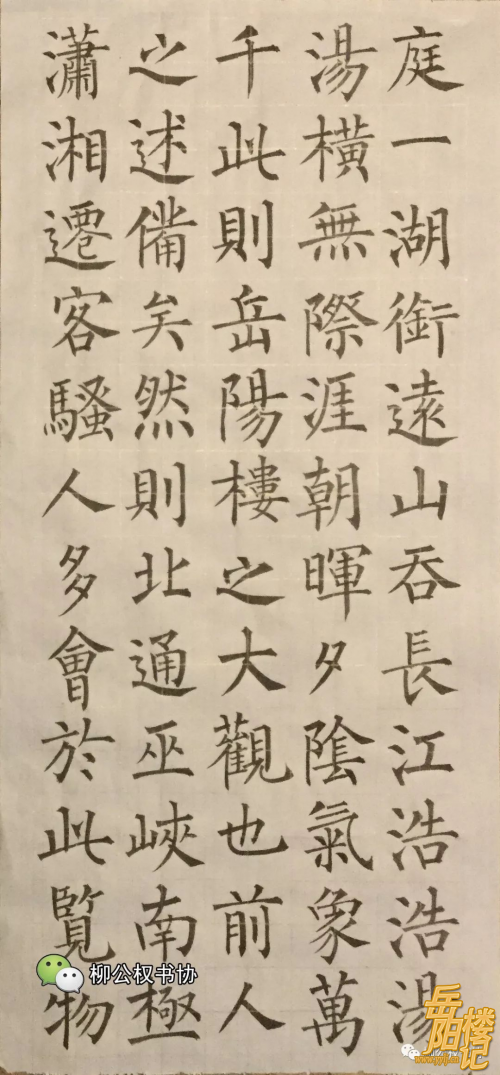 庭一湖銜遠山吞長江浩浩湯
湯橫無際涯朝暉夕陰氣象萬
千此則岳陽樓之大觀也前人
之述備矣然則北通巫峽南極
瀟湘遷客騷人多會於此覽物
柳公权书协
岳阳楼记